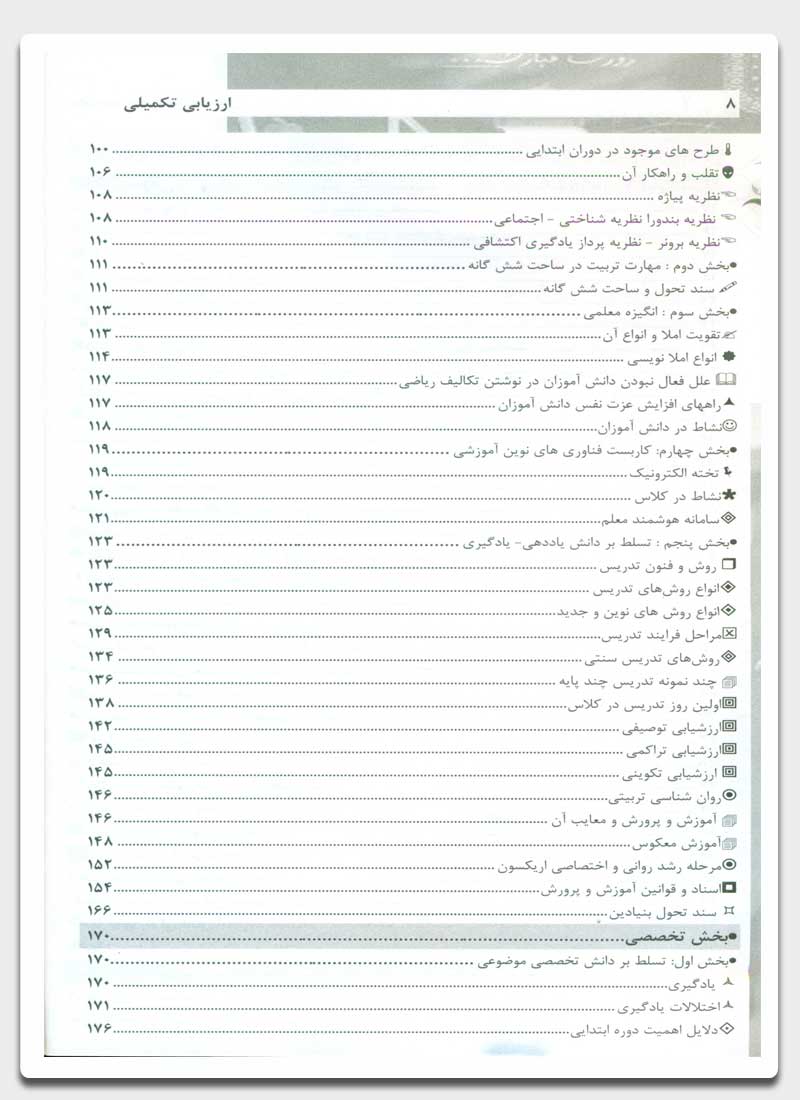 ۸ ارزیابی تکمیلی
طرح های موجود در دوران ابتدایی ........ ۱۰۰
تقلب و راهکار آن ........ ۱۰۶
نظریه پیاژه ........ ۱۰۸
نظریه بندورا نظریه شناختی - اجتماعی ........ ۱۰۸
نظریه برونر - نظریه پرداز یادگیری اکتشافی ........ ۱۱۰
●بخش دوم : مهارت تربیت در ساحت شش گانه ........ ۱۱۱
سند تحول و ساحت شش گانه ........ ۱۱۱
●بخش سوم : انگیزه معلمی ........ ۱۱۳
تقویت املا و انواع آن ........ ۱۱۳
انواع املا نویسی ........ ۱۱۴
علل فعال نبودن دانش آموزان در نوشتن تکالیف ریاضی ........ ۱۱۷
راههای افزایش عزت نفس دانش آموزان ........ ۱۱۷
نشاط در دانش آموزان ........ ۱۱۸
●بخش چهارم: کاربست فناوری های نوین آموزشی ........ ۱۱۹
تخته الکترونیک ........ ۱۱۹
نشاط در کلاس ........ ۱۲۰
سامانه هوشمند معلم ........ ۱۲۱
●بخش پنجم : تسلط بر دانش یاددهی- یادگیری ........ ۱۲۳
روش و فنون تدریس ........ ۱۲۳
انواع روش‌های تدریس ........ ۱۲۳
انواع روش های نوین و جدید ........ ۱۲۵
مراحل فرایند تدریس ........ ۱۲۹
روش‌های تدریس سنتی ........ ۱۳۴
چند نمونه تدریس چند پایه ........ ۱۳۶
اولین روز تدریس در کلاس ........ ۱۳۸
ارزشیابی توصیفی ........ ۱۴۲
ارزشیابی تراکمی ........ ۱۴۵
ارزشیابی تکوینی ........ ۱۴۵
روان شناسی تربیتی ........ ۱۴۶
آموزش و پرورش و معایب آن ........ ۱۴۶
آموزش معکوس ........ ۱۴۸
مرحله رشد روانی و اختصاصی اریکسون ........ ۱۵۲
اسناد و قوانین آموزش و پرورش ........ ۱۵۴
سند تحول بنیادین ........ ۱۶۶
●بخش تخصصی ........ ۱۷۰
●بخش اول: تسلط بر دانش تخصصی موضوعی ........ ۱۷۰
یادگیری ........ ۱۷۰
اختلالات یادگیری ........ ۱۷۱
دلایل اهمیت دوره ابتدایی ........ ۱۷۶